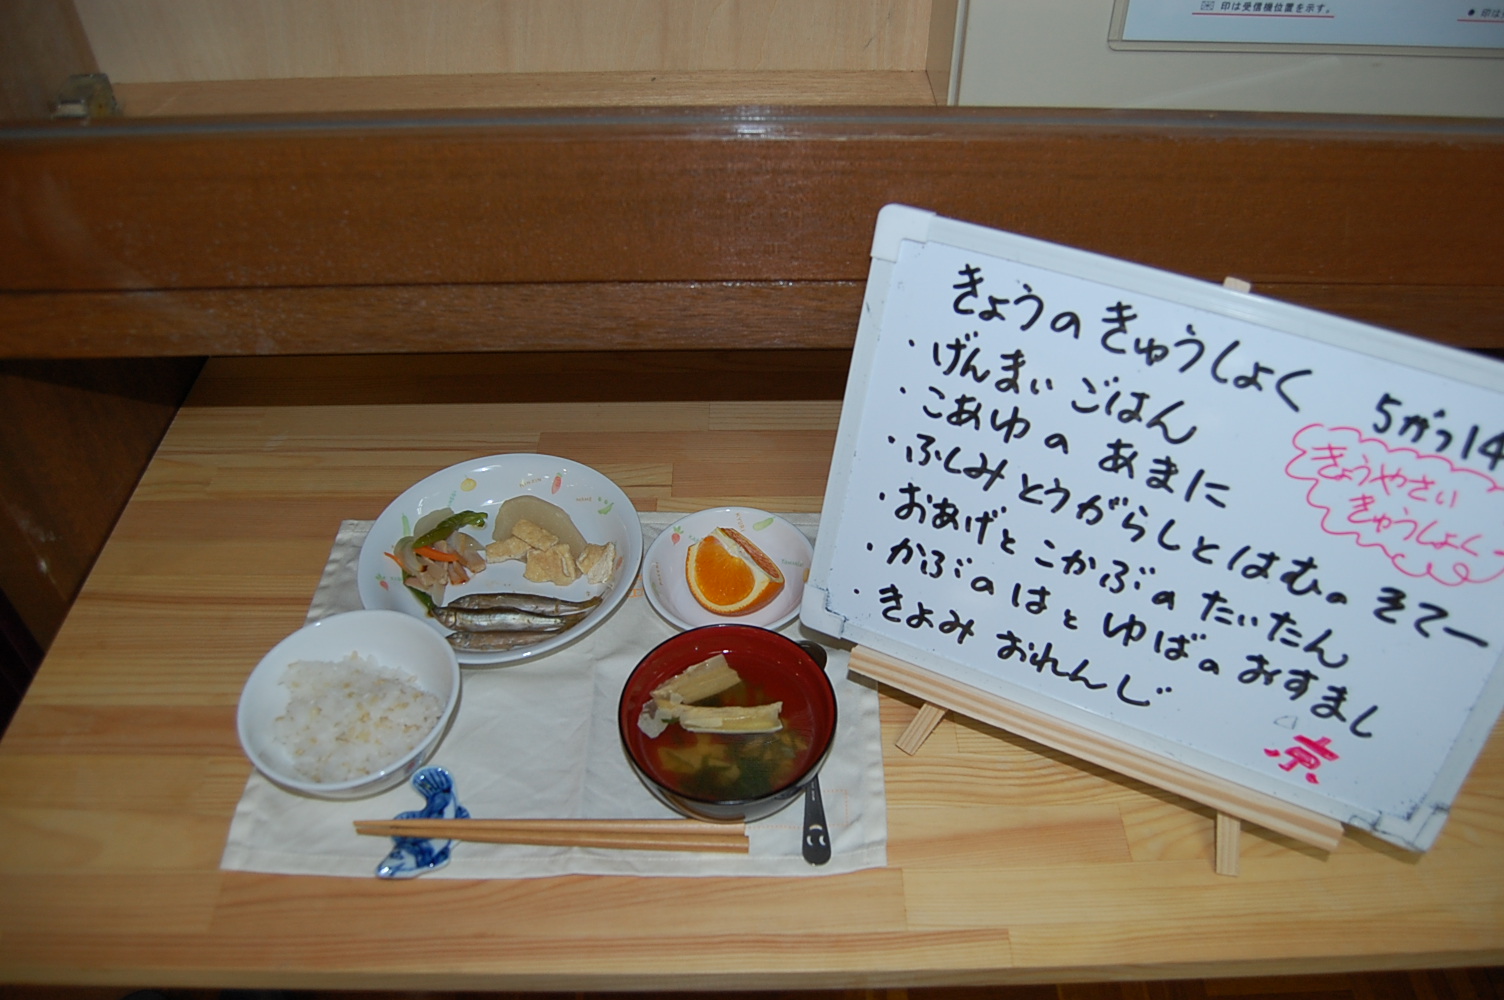 印は受信機位置を示す。
きょうの きゅうしょく
5がつ14
・げんまい ごはん
きょうやさい
きゅうしょく
・こあゆの あまに
・ふしみとうがらしとはむの そてー
・おあげと こかぶの たいたん
・かぶの はと ゆばの おすまし
・きよみ おれんじ
京